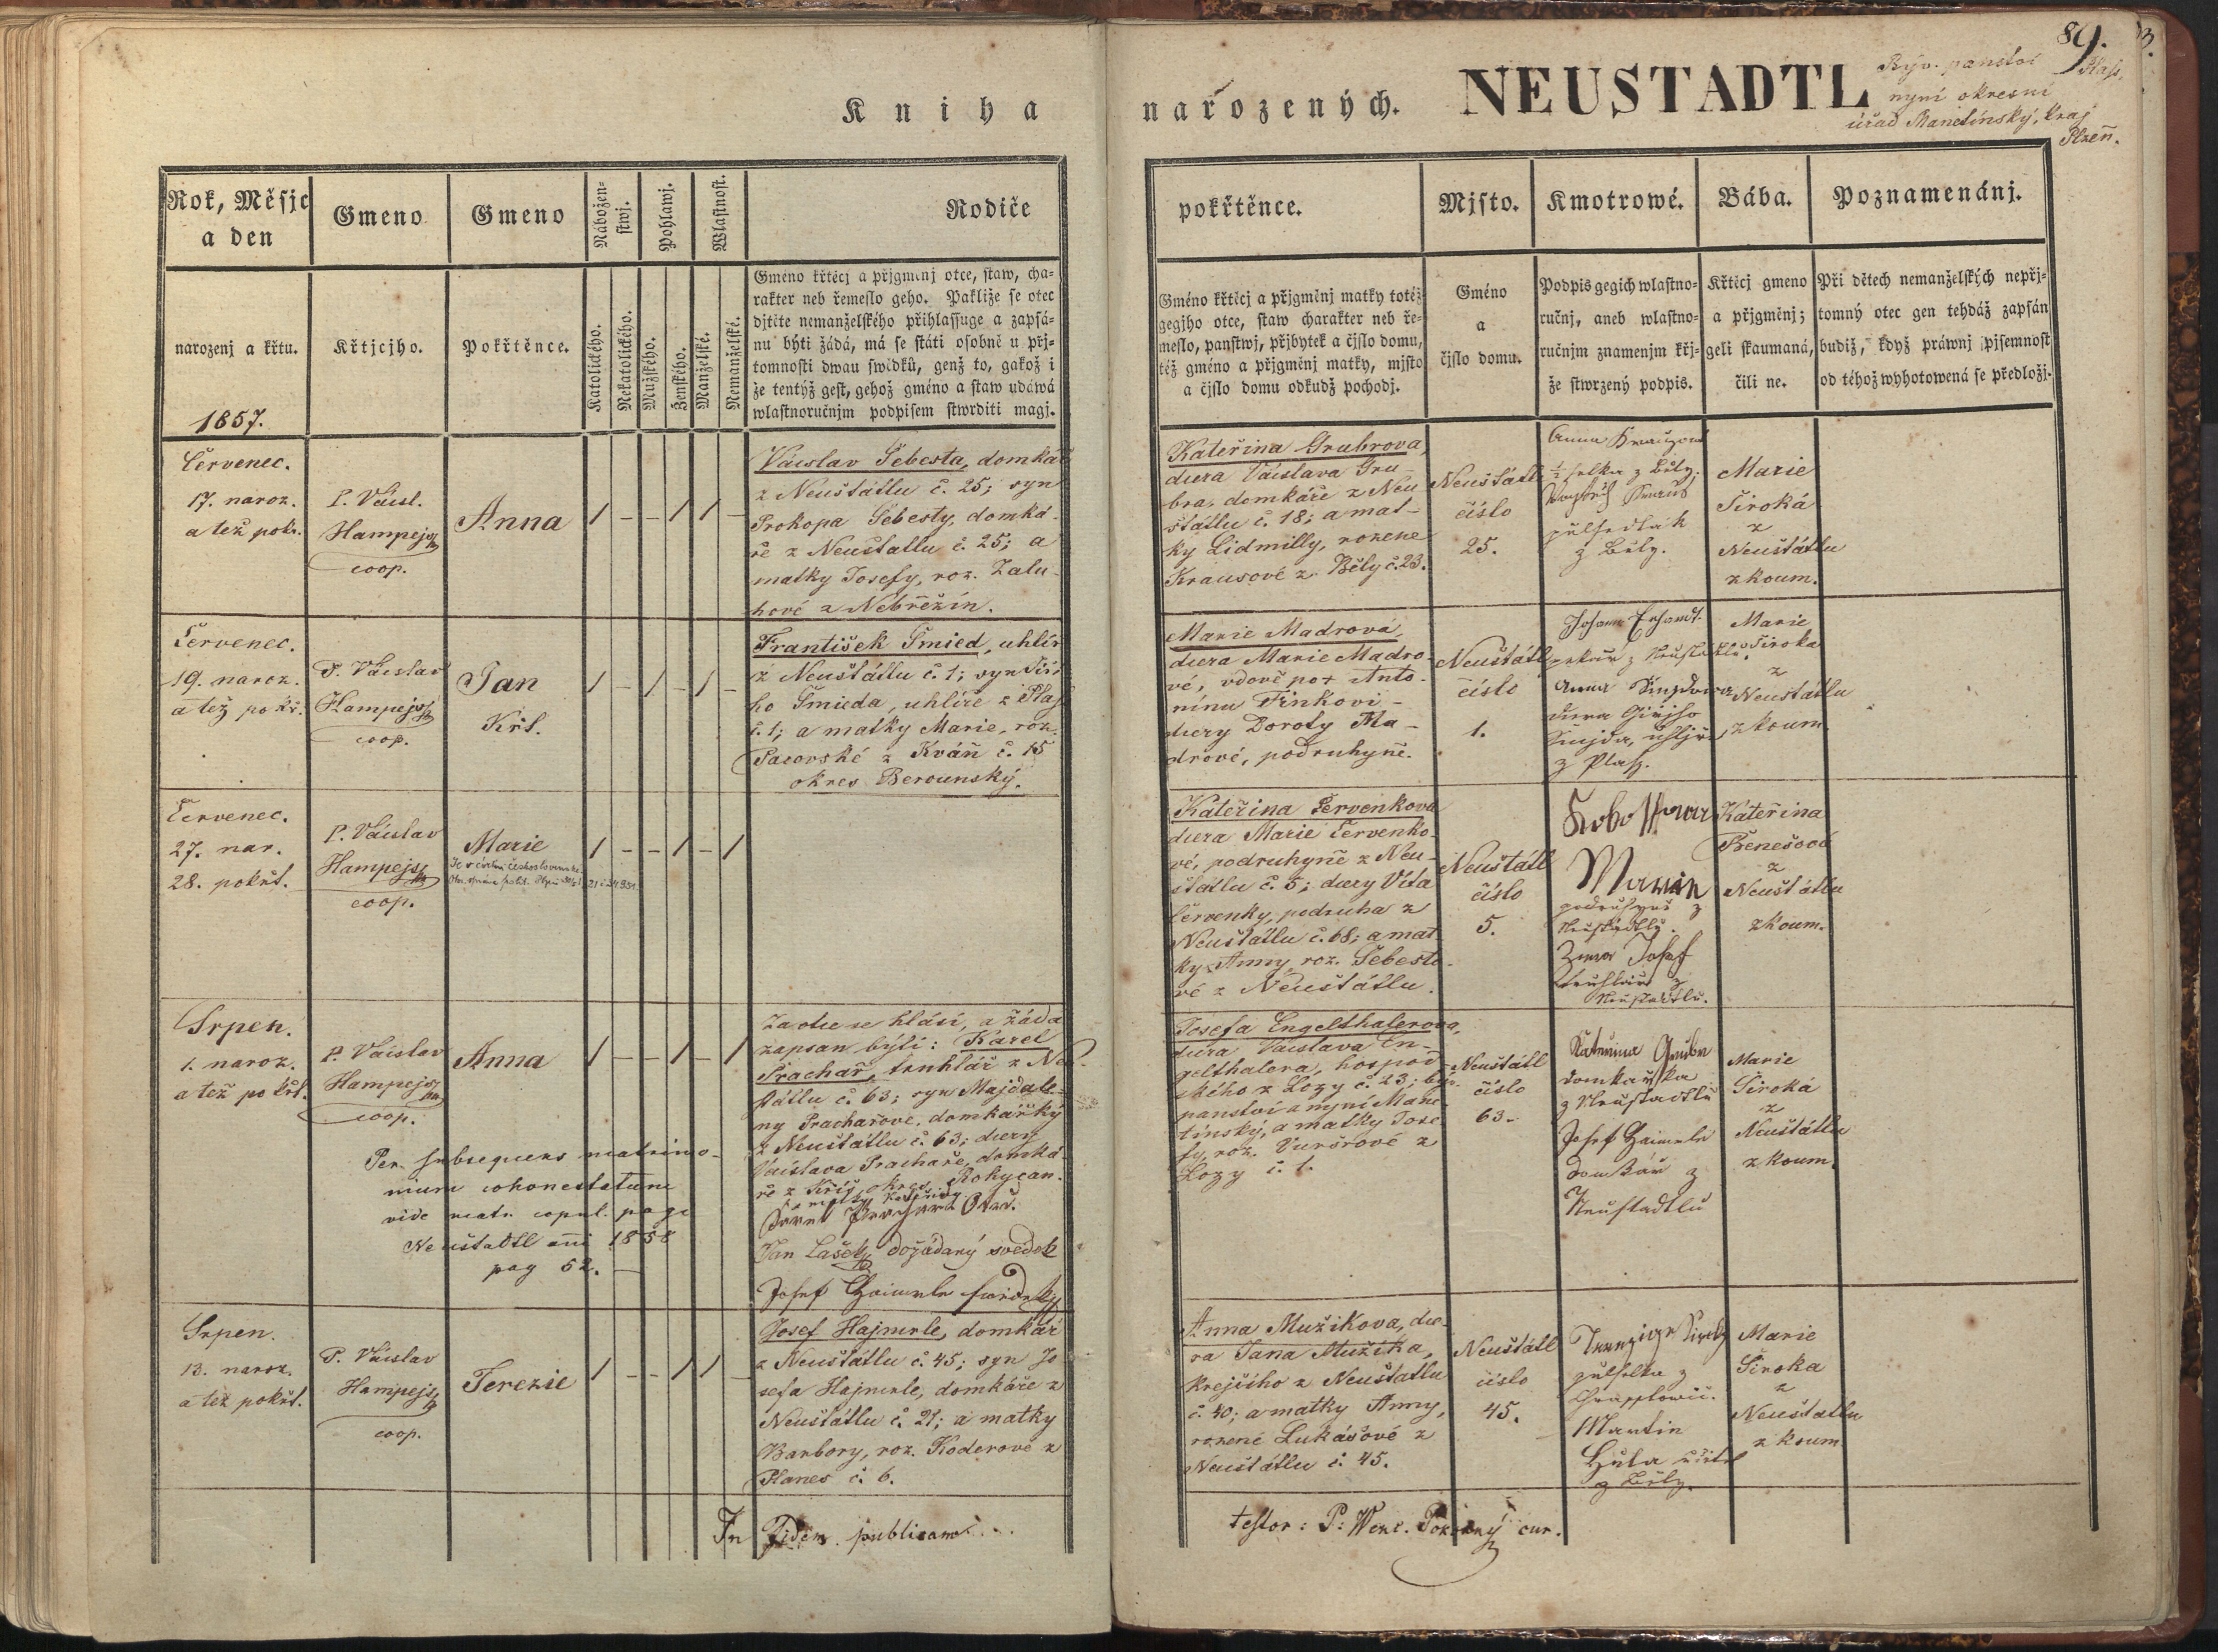 89.
Kniha
narozených. NEUSTADTL
Býv. panství Plass,
nyní okresní
úřad Manetínský, kraj
Plzeň.
Rok, Měsjc
a den
narozenj a křtu.
1857.
Gmeno
Křtjcjho.
Gmeno
Pokřtěnce.
Náboženstwj.
Katolického.
Nekatolického.
Pohlawj.
Mužského.
Ženského.
Wlastnost.
Manželské.
Nemanželské.
Rodiče
Gméno křtěcj a přjgmenj otce, staw, cha-
rakter neb řemeslo geho. Pakliže se otec
djtěte nemanželského přihlassuge a zapsá-
nu býti žádá, má se státi osobně u přj-
tomnosti dwau swědků, genž to, gakož i
že tentýž gest, gehož gméno a staw udáwá
wlastnoručnjm podpisem stwrditi magj.
pokřtěnce.
Gméno křtěcj a přjgměnj matky totéž
gegjho otce, staw charakter neb ře-
meslo, panstwj, přjbytek a čjslo domu,
též gméno a přjgměnj matky, mjsto
a čjslo domu odkudž pochodj.
Mjsto.
Gméno
a
čjslo domu.
Kmotrowé.
Podpis gegich wlastno-
ručnj, aneb wlastno-
ručnjm znamenjm křj-
že stwrzený podpis.
Bába.
Křtěcj gmeno
a přjgměnj;
geli skaumaná,
čili ne.
Poznamenánj.
Při dětech nemanželských nepřj-
tomný otec gen tehdáž zapsán
budiž, když práwnj pjsemnost
od téhož wyhotowená se předložj.
Červenec.
17. naroz.
a též pokř.
P. Václ.
Hampejs
coop.
Anna
1 – – 1 1 –
Václav Šebesta, domkář
z Neuštátlu č. 25; syn
Prokopa Šebesty, domká-
ře z Neuštatlu č. 25; a
matky Josefy, roz. Zalu-
hové z Nebřežin.
Kateřina Grubrova,
dcera Václava Gru-
bra, domkáře z Neu-
štatlu č. 18; a mat-
ky Lidmilly, rozene
Krausové z Běly č. 23.
Neuštátl
číslo
25.
z Běly.
půlsedlák
z Běly.
Marie
Široká
z
Neuštátlu
zkoum.
Červenec.
19. naroz.
a též pokř.
P. Václav
Hampejs
coop.
Jan
Křt.
1 – 1 – 1 –
František Šmied, uhlíř
z Neuštátlu č. 1; syn Jiří-
ho Šmieda, uhlíře z Plas
č. 1; a matky Marie, roz.
Pacovské z Kváň č. 15
okres Berounský.
Marie Madrová,
dcera Marie Madro-
vé, vdově po + Anto-
nínu Finkovi –
dcery Doroty Ma-
drové, podruhyně.
Neuštátl
číslo
1.
Anna
z Plass.
Marie
Široka
z
Neuštátlu
zkoum.
Červenec.
27. nar.
28. pokřt.
P. Václav
Hampejs
coop.
Marie
1 – – 1 – 1
Kateřina Červenkova
dcera Marie Červenko-
vé, podruhyně z Neu-
štátlu č. 5; dcery Víta
Červenky, podruha z
Neuštátlu č. 68; a mat-
ky Anny, roz. Šebesto-
vé z Neuštátlu.
Neuštátl
číslo
5.
Marie
podruhyně z
Neustadtlu.
Josef
truhlář z
Neustadtlu.
Kateřina
Benešová
z
Neuštátlu
zkoum.
Srpen.
1. naroz.
a též pokřt.
P. Václav
Hampejs
coop.
Anna
1 – – 1 – 1
Per subsequens matrimo-
nium cohonestatum
vide matr. copul. pagi
Neustadtl anni 1858
pag 52.
Za otce se hlásí, a žádá
zapsan býti: Karel
Prachař, truhlář z Neu-
štátlu č. 63; syn Majdale-
ny Prachařové, domkářky
z Neuštátlu č. 63; dcery
Václava Prachaře, domká-
ře z Kříš, okres Rokycan.
a matky Kateřiny
Karel Prachař Otec.
Jan Lašek dožádaný svědek
Josef Haimerle svědek
Josefa Engelthalerova,
dcera Václava En-
gelthalera, hospod-
ského z Lozy č. 23; býv.
panství a nyní Mane-
tínský, a matky Jose-
fy, roz. Vuršrové z
Lozy č. 1.
Neuštátl
číslo
63.
Katerina Gruber
domkařka
z Neustadtlu
Josef Haimerle
domkář z
Neustadtlu
Marie
Široká
z
Neuštátlu
zkoum.
Srpen.
13. naroz.
a též pokřt.
P. Václav
Hampejs
coop.
Terezie
1 – – 1 1 –
Josef Hajmrle, domkář
z Neuštátlu č. 45; syn Jo-
sefa Hajmrle, domkáře z
Neuštátlu č. 21; a matky
Barbory, roz. Koderové z
Planes č. 6.
Anna Mužikova, dce-
ra Jana Mužika,
krejčího z Neuštatlu
č. 40; a matky Anny,
rozené Lukášové z
Neuštátlu č. 45.
Neuštátl
číslo
45.
Martin
Huta
z Běly.
Marie
Široka
z
Neuštatlu
zkoum
In Fidem publicam
testor: P: Wenc. Pokorný cur.